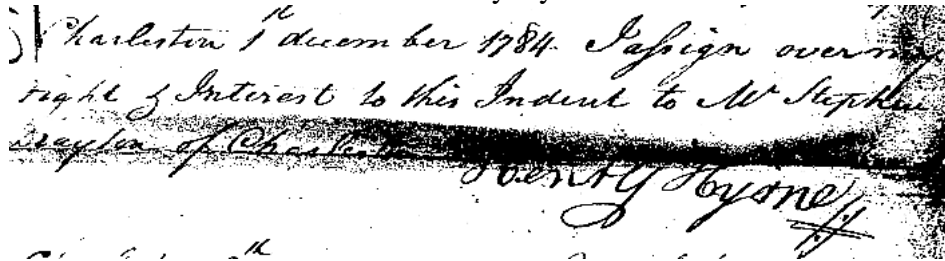 Charleston 1st december 1784. I assign over my
right & Interest to this Indent to Mr Stephen
Drayton of Charleston
Hyrne